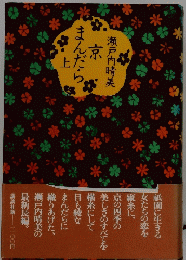 瀬戸内晴美
京
まんだら
上
祇園に生きる
女たちの恋を
縦糸に、
京の四季の
美しさのすべてを
横糸にして
目も綾な
まんだらに
織りあげた、
瀬戸内晴美の
最新長編。